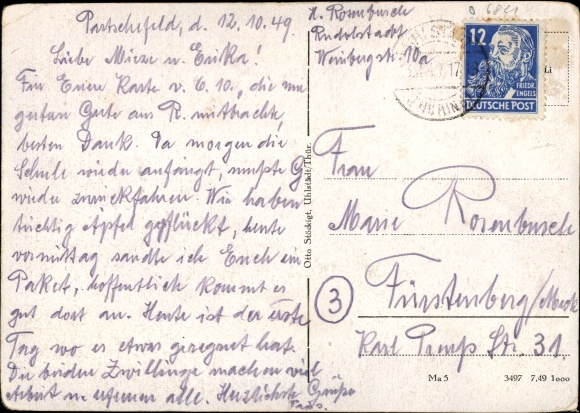 Partschefeld, d. 12.10.49.
Liebe Mieze u. Erika!
Für Eure Karte v. 6.10., die
gestern Gute aus R. mitbrachte,
besten Dank. Da morgen die
Schule wieder anfängt, mußte G
wieder zurückfahren. Wir haben
tüchtig Äpfel gepflückt, heute
vormittag sandte ich Euch ein
Paket, hoffentlich kommt es
gut dort an. Heute ist der erste
Tag wo es etwas geregnet hat.
Die beiden Zwillinge machen viel
Arbeit u. allen alle. Herzlichste Grüße
Rosenbusch
Rudolstadt
Weinbergstr. 10a
12
FRIEDR.
ENGELS
DEUTSCHE POST
Frau
Marie Rosenbusch
3
Fürstenberg/Meckl
Karl Str. 31
Otto Stödtgt, Uhlstädt/Thür.
Ma 5 3497 7,49 1000